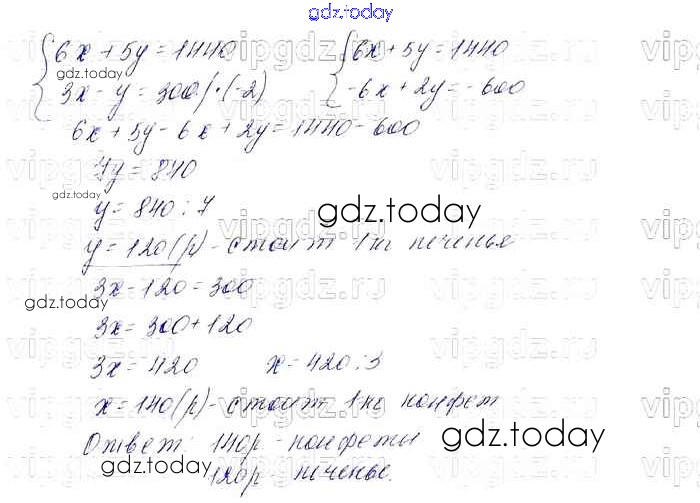 gdz.today
{6x + 5y = 1440    {6x + 5y = 1440
gdz.today
3x - y = 300 | · (-2)    -6x + 2y = -600
6x + 5y - 6x + 2y = 1440 - 600
7y = 840
gdz.today
y = 840 : 7
gdz.today
y = 120 (р) - стоит 1 кг печенья
3x - 120 = 300
gdz.today
3x = 300 + 120
3x = 420    x = 420 : 3
x = 140 (р) - стоит 1 кг конфет
Ответ: 140р - конфеты
gdz.today
gdz.today
120р - печенье.
vipgdz.ru